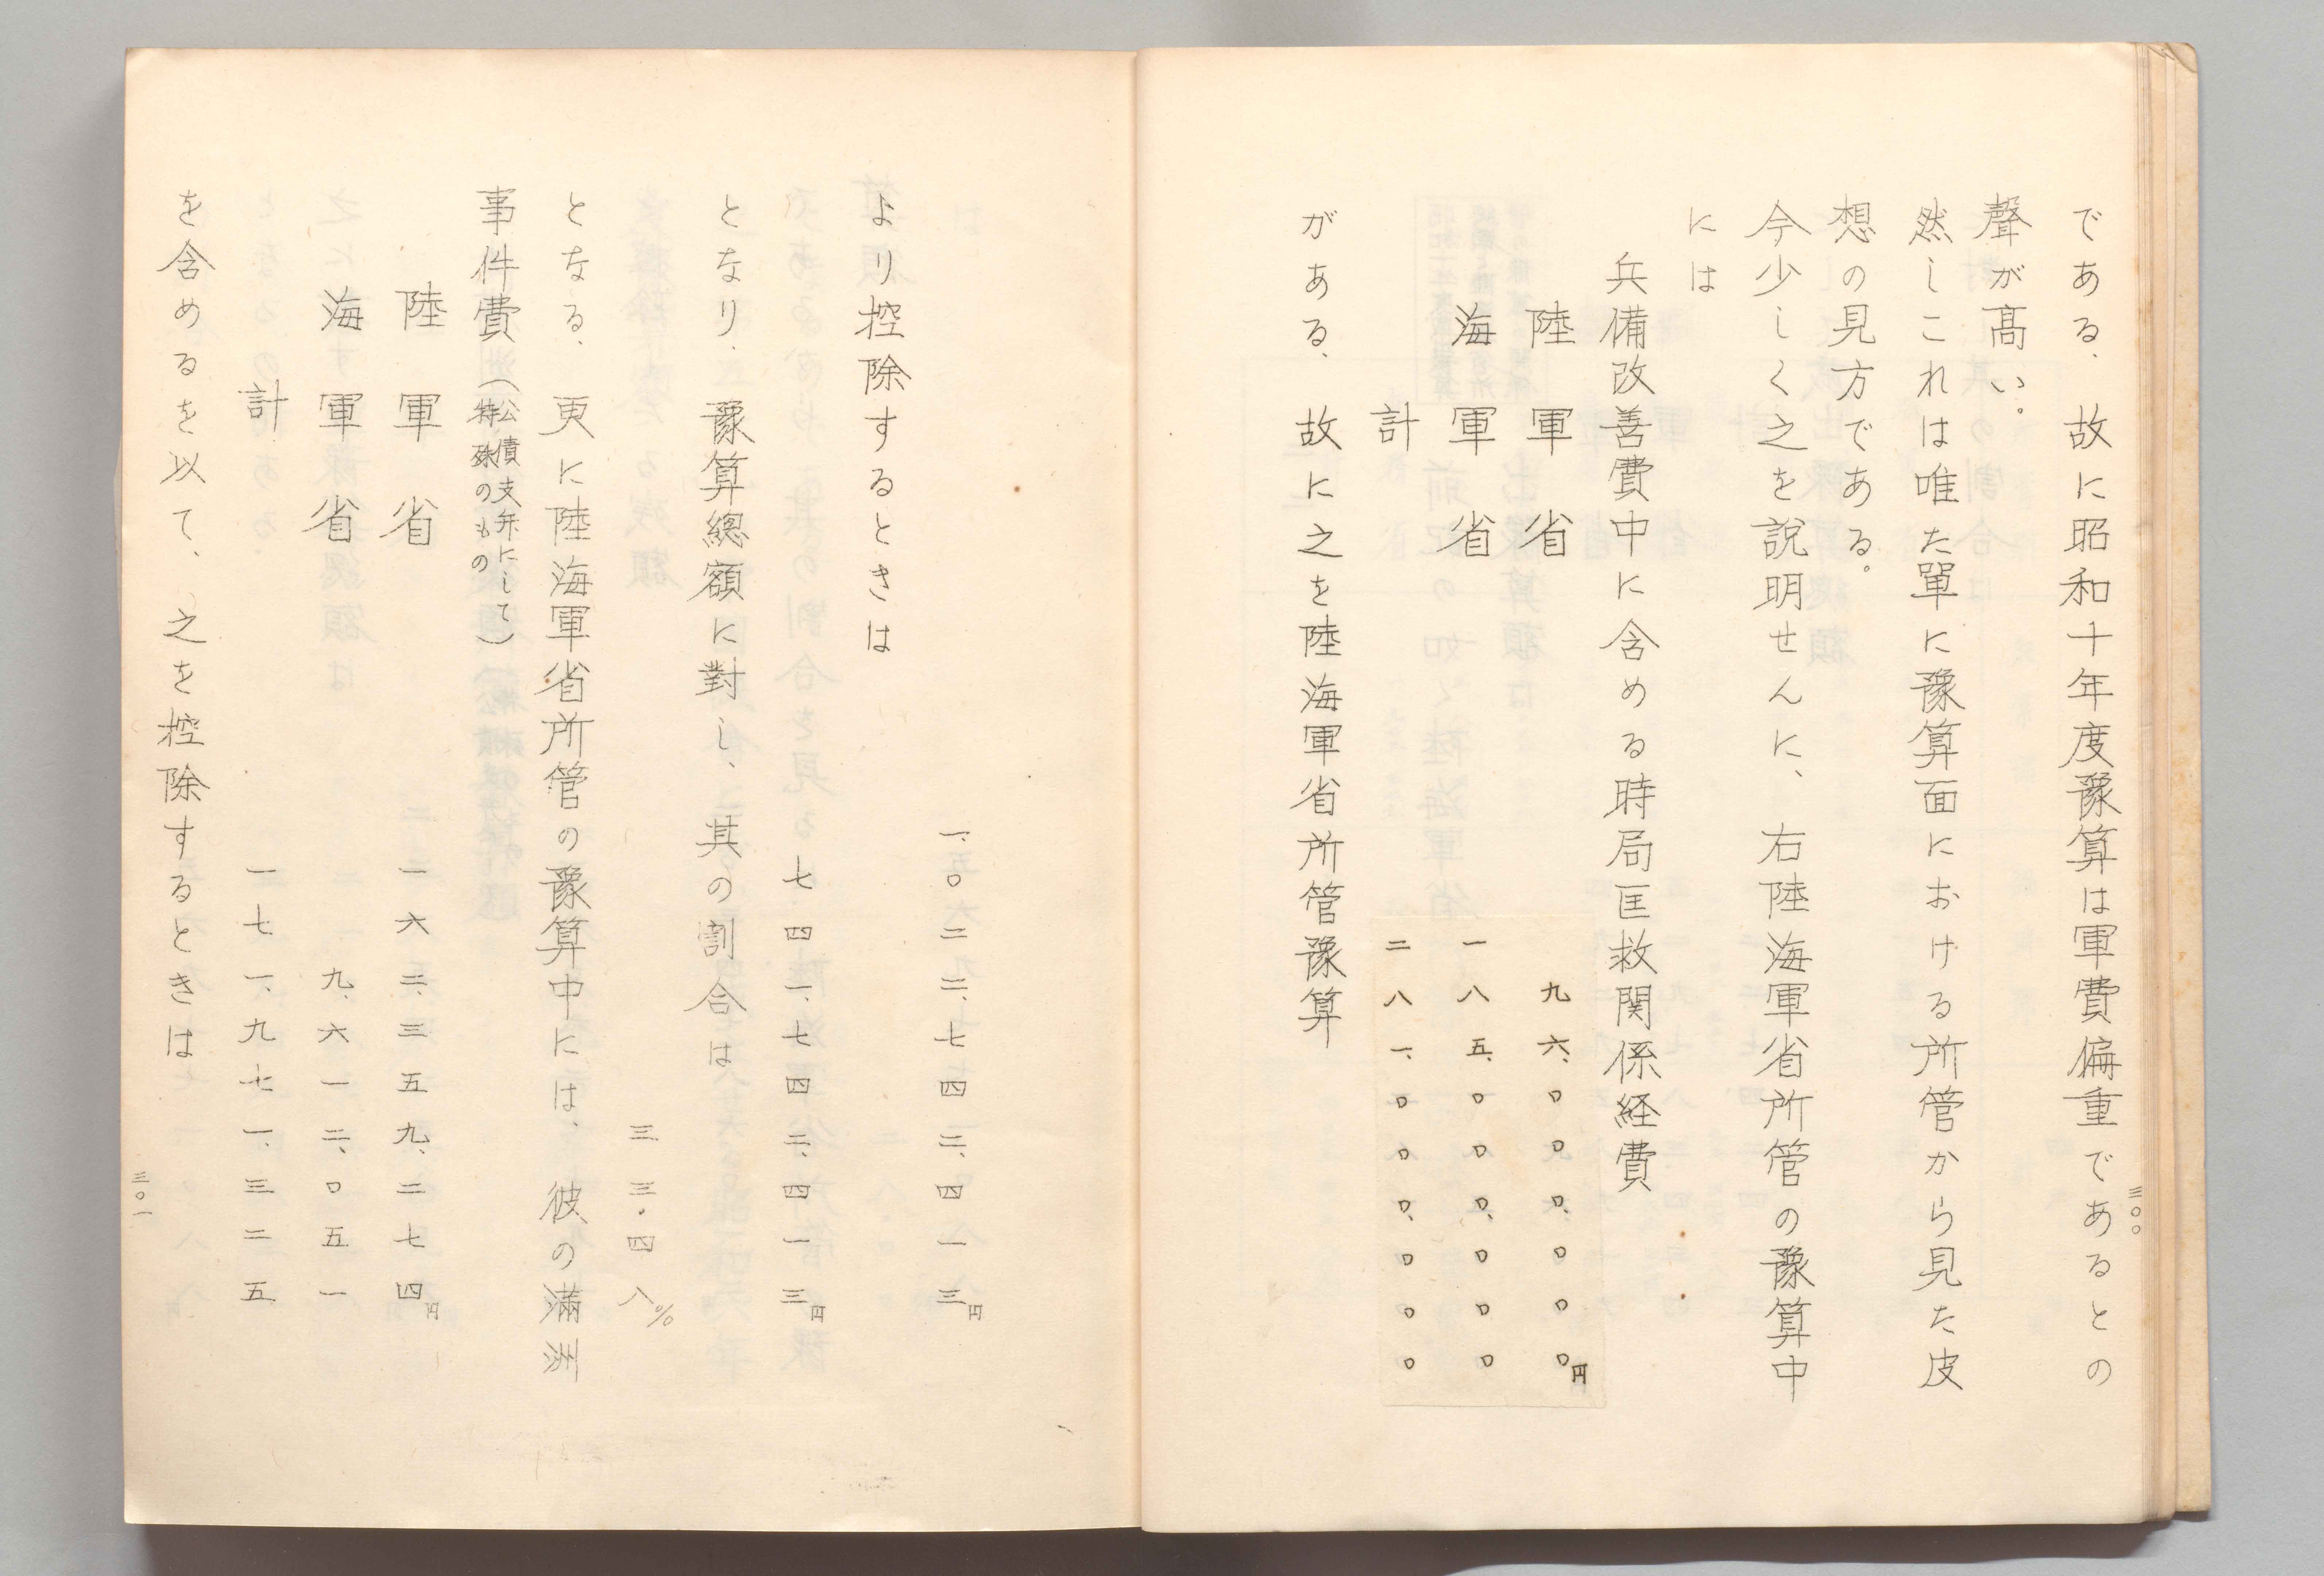 三〇〇
である、故に昭和十年度豫算は軍費偏重であるとの
聲が髙い。
然しこれは唯た單に豫算面における所管から見た皮
想の見方である。
今少しく之を說明せんに、右陸海軍省所管の豫算中
には
兵備改善費中に含める時局匡救関係経費
陸軍省 九六、〇〇〇、〇〇〇円
海軍省 一八五、〇〇〇、〇〇〇
計 二八一、〇〇〇、〇〇〇
がある、故に之を陸海軍省所管豫算
一、〇二二、七四二、四一三円
より控除するときは
七四一、七四二、四一三円
となり、豫算總額に對し、其の割合は
三三・四八%
となる、更に陸海軍省所管の豫算中には、彼の滿洲
事件費(公債支弁にして特殊のもの)
陸軍省 一六二、三五九、二七四円
海軍省 九、六一二、〇五一
計 一七一、九七一、三二五
を含めるを以て、之を控除するときは
三〇一